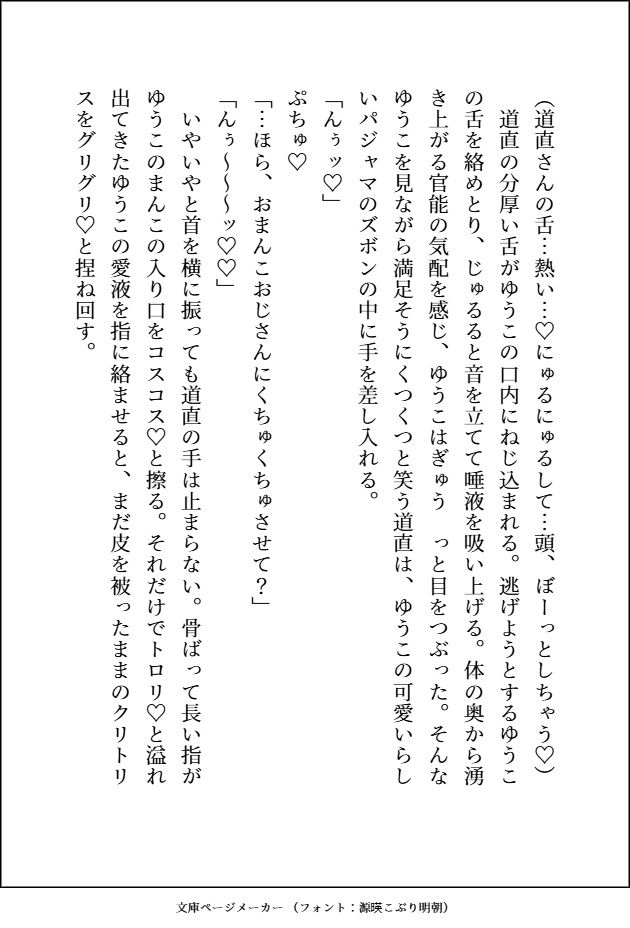 (道直さんの舌…熱い…♡にゅるにゅるして…頭、ぼーっとしちゃう♡)
道直の分厚い舌がゆうこの口内にねじ込まれる。逃げようとするゆうこ
の舌を絡めとり、じゅるると音を立てて唾液を吸い上げる。体の奥から湧
き上がる官能の気配を感じ、ゆうこはぎゅう　っと目をつぶった。そんな
ゆうこを見ながら満足そうにくつくつと笑う道直は、ゆうこの可愛いらし
いパジャマのズボンの中に手を差し入れる。
「んぅッ♡」
ぷちゅ♡
「…ほら、おまんこおじさんにくちゅくちゅさせて？」
「んぅ～～～ッ♡♡」
いやいやと首を横に振っても道直の手は止まらない。骨ばって長い指が
ゆうこのまんこの入り口をコスコス♡と擦る。それだけでトロリ♡と溢れ
出てきたゆうこの愛液を指に絡ませると、まだ皮を被ったままのクリトリ
スをグリグリ♡と捏ね回す。
文庫ページメーカー（フォント：源暎こぶり明朝）